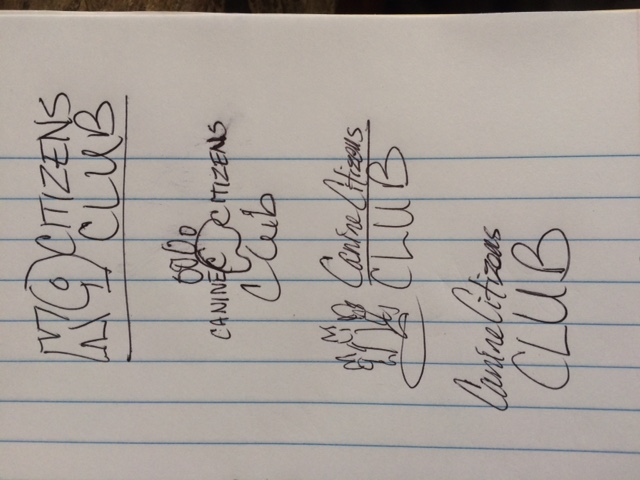 K9 CITIZENS
CLUB
CANINE CITIZENS
CLUB
Canine Citizens
CLUB
Canine Citizens
CLUB